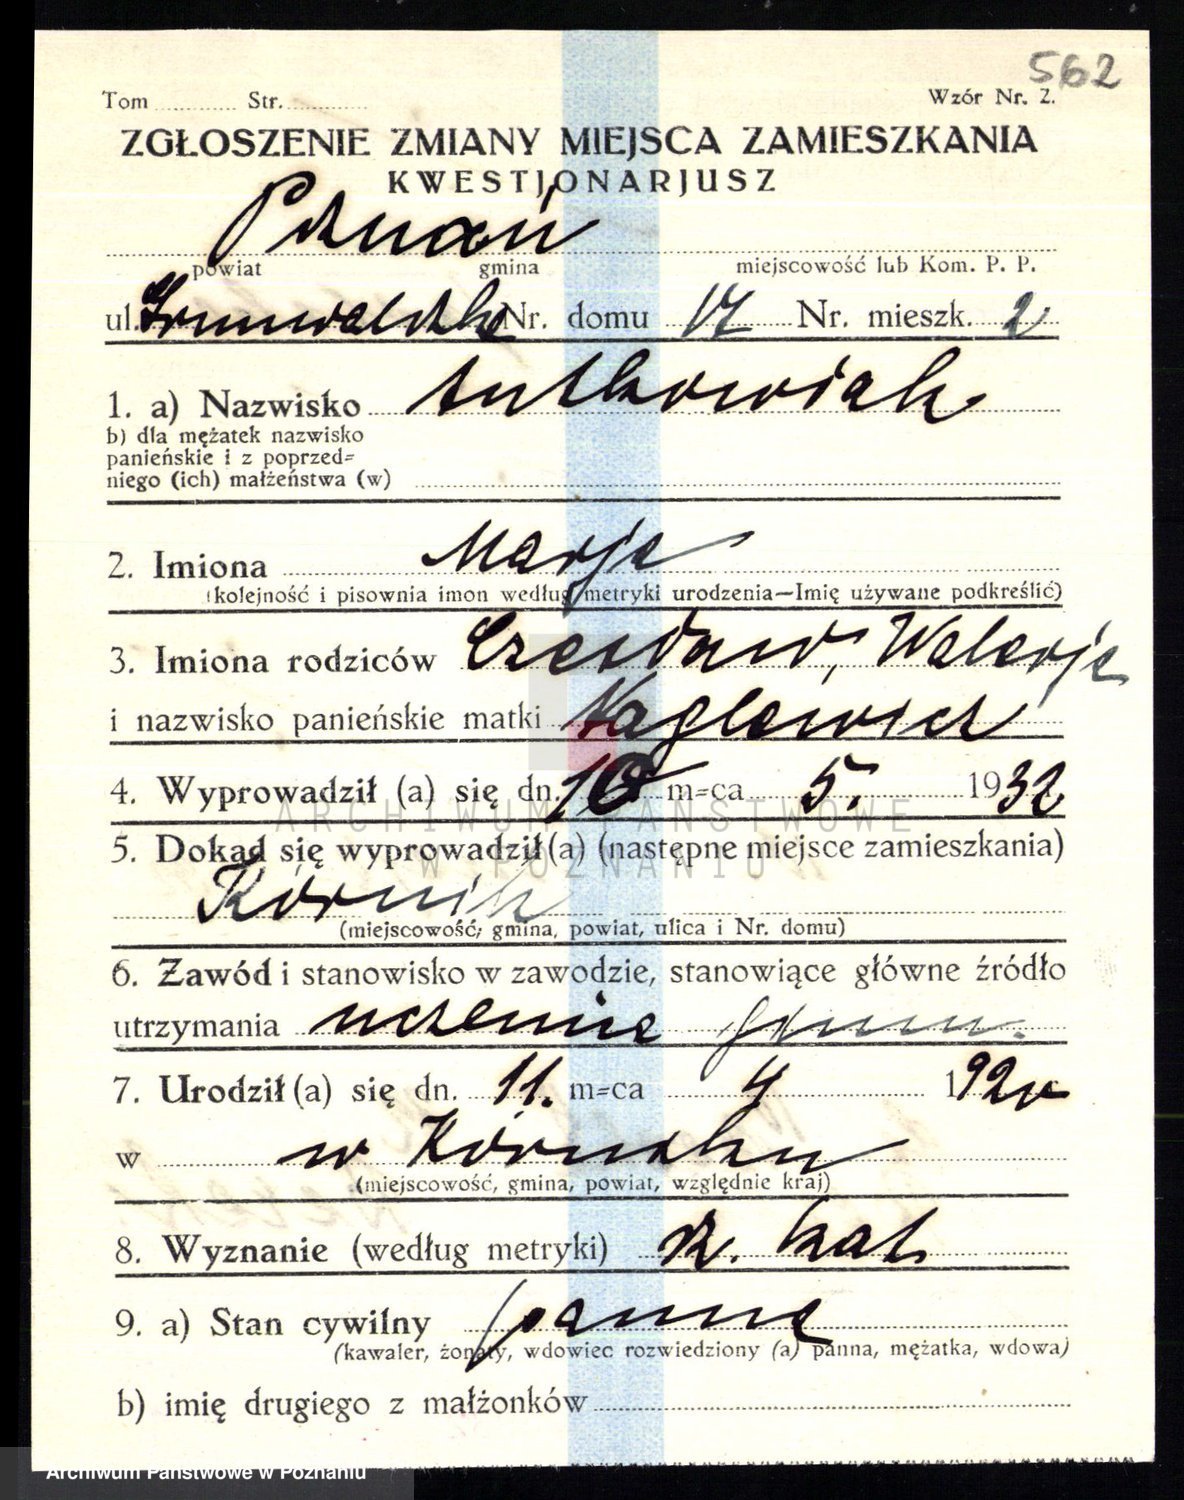 562
Tom ........... Str. ........... Wzór Nr. 2.
ZGŁOSZENIE ZMIANY MIEJSCA ZAMIESZKANIA
KWESTJONARJUSZ
Poznań
powiat gmina miejscowość lub Kom. P. P.
ul. Grunwaldzka Nr. domu 17 Nr. mieszk. 2
1. a) Nazwisko Antkowiak
b) dla mężatek nazwisko
panieńskie i z poprzed=
niego (ich) małżeństwa (w)
2. Imiona Marja
(kolejność i pisownia imon według metryki urodzenia—Imię używane podkreślić)
3. Imiona rodziców Czesław, Walerja
i nazwisko panieńskie matki
4. Wyprowadził (a) się dn. 10 m=ca 5. 1932
5. Dokąd się wyprowadził(a) (następne miejsce zamieszkania)
ARCHIWUM PAŃSTWOWE
W POZNANIU
Kórnik
(miejscowość, gmina, powiat, ulica i Nr. domu)
6. Zawód i stanowisko w zawodzie, stanowiące główne źródło
utrzymania uczenica gimn.
7. Urodził (a) się dn. 11. m=ca 4 192
w w Kórniku
(miejscowość, gmina, powiat, względnie kraj)
8. Wyznanie (według metryki) rz. kat.
9. a) Stan cywilny panna
(kawaler, żonaty, wdowiec rozwiedziony (a) panna, mężatka, wdowa)
b) imię drugiego z małżonków
Archiwum Państwowe w Poznaniu